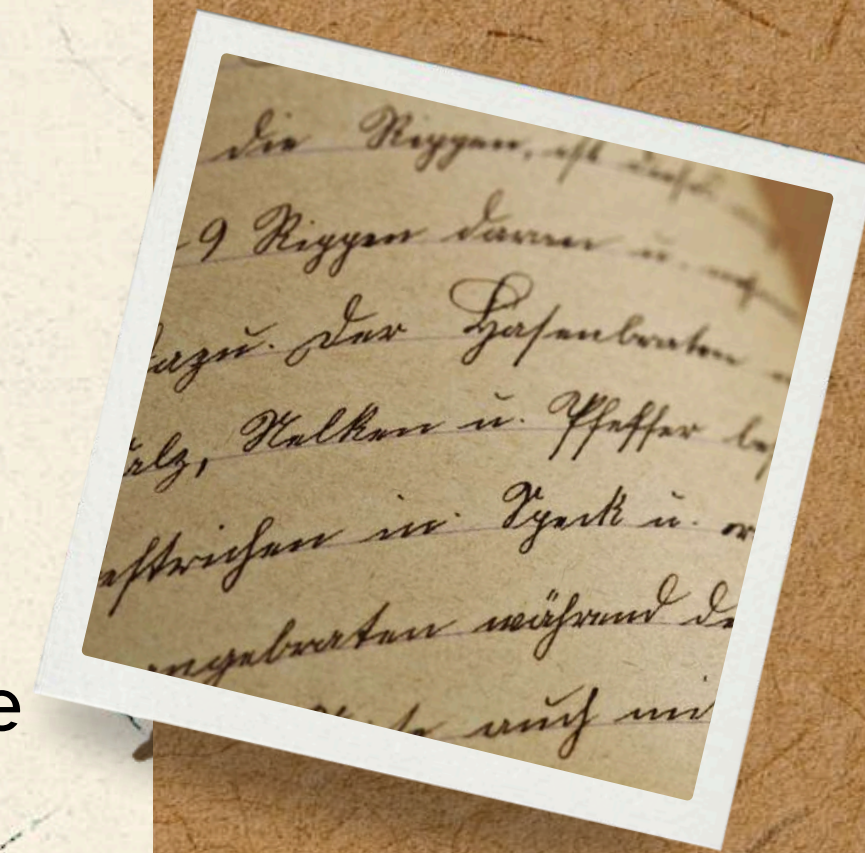 die Rippen, ist
-9 Rippen daran u.
dazu. Der Hasenbraten
alz, Nelken u. Pfeffer
estrichen in. Speck u.
angebraten während de
auch mi
e